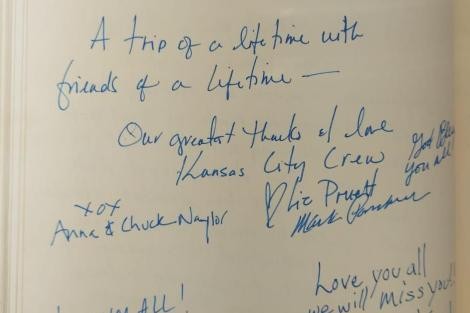 A trip of a lifetime with
friends of a lifetime —
Our greatest thanks & love
Kansas City Crew
God Bless
you all!
xox
Anna & Chuck Naylor
Liz Pruett
Mark
Love you all
we will miss you!!
ALL!